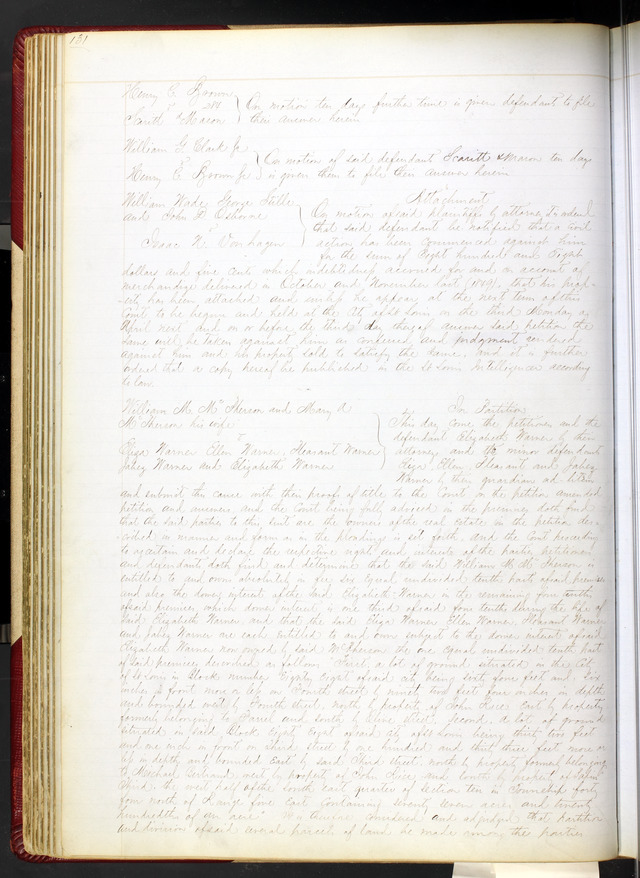 131
Henry C. Brown
vs 284
Scaritt & Mason } On motion ten days further time is given defendant to file
their answer herein
William G. Clark Jr
vs
Henry C. Brown Jr } On motion of said defendant Scaritt & Mason ten days
is given them to file their answer herein
William Wade, George Stille
and John P. Osborne
vs
Isaac N. Vanhagen
Attachment
On motion of said plaintiffs by attorney, it is ordered
that said defendant be notified that a civil
action has been commenced against him
for the sum of Eight hundred and Eighty
dollars and five cents which indebtedness accrued for and on account of
merchandize delivered in October and November last (1849), that his prop-
erty has been attached and unless he appear at the next term of this
Court to be begun and held at the City of St Louis on the third Monday of
April next and on or before the third day thereof answer said petition the
same will be taken against him as confessed and judgment rendered
against him and his property sold to satisfy the same, and it is further
ordered that a copy hereof be published in the St Louis Intelligencer according
to law.
William M. McPherson and Mary A
McPherson his wife
vs
Eliza Warner Ellen Warner, Pleasant Warner
Jabez Warner and Elizabeth Warner
In Partition
This day come the petitioners and the
defendant Elizabeth Warner by their
attorney and the minor defendants
Eliza Ellen Pleasant and Jabez
Warner by their guardian ad litem
and submit this cause with their proofs of title to the Court on the petition amended
petition and answers and the Court being fully advised in the premises doth find
that the said parties to this suit are the owners of the real estate in the petition des-
cribed in manner and form as in the pleadings is set forth and the Court proceeding
to ascertain and declare the respective rights and interests of the parties petitioners
and defendants doth find and determine that the said William M. McPherson is
entitled to and owns absolutely in fee six equal undivided tenth parts of said premises
and also the dower interest of the said Elizabeth Warner in the remaining four tenths
of said premises which dower interest is one third of said four tenths during the life of
said Elizabeth Warner and that the said Eliza Warner Ellen Warner Pleasant Warner
and Jabez Warner are each entitled to and own subject to the dower interest of said
Elizabeth Warner now owned by said McPherson the one equal undivided tenth part
of said premises described as follows First, a lot of ground situated in the City
of St Louis in Block number Eighty Eight of said city being sixty four feet and six
inches in front more or less on Fourth street by ninety two feet four inches in depth
and bounded west by Fourth street, north by property of John Rice East by property
formerly belonging to and south by Pine street, Second, a lot of ground
situated in said Block Eighty Eight of said City of St Louis being thirty two feet
and one inch in front on Third street by one hundred and thirty three feet more or
less in depth and bounded East by said Third street north by property formerly belonging
to Michael west by property of John Rice and South by property of
Third the west half of the south east quarter of section ten in Township forty
four north of Range five East containing seventy seven acres and twenty
hundredths of an acre. It is therefore considered and adjudged that partition
and division of said several parcels of land be made among the parties